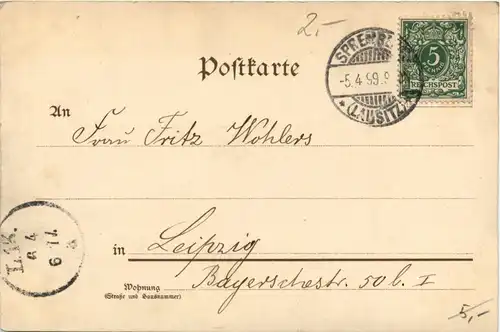 2.-
Postkarte
SPREMBERG
-5.4.99.8-
* (LAUSITZ)
5
REICHSPOST
An
Frau Fritz Wohlers
in Leipzig
Wohnung Bayerschestr. 50 b. I
(Straße und Hausnummer)
5,-